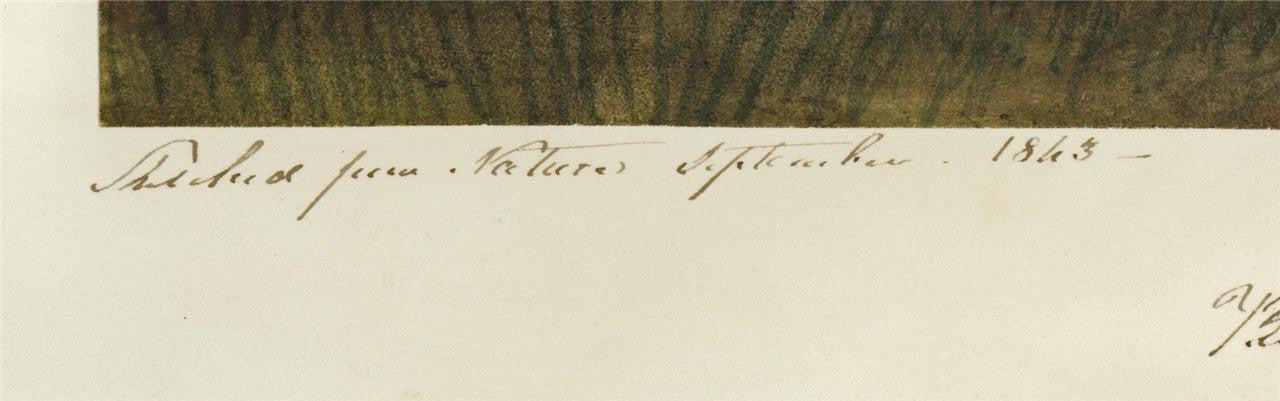 Sketched from Nature September. 1843 –